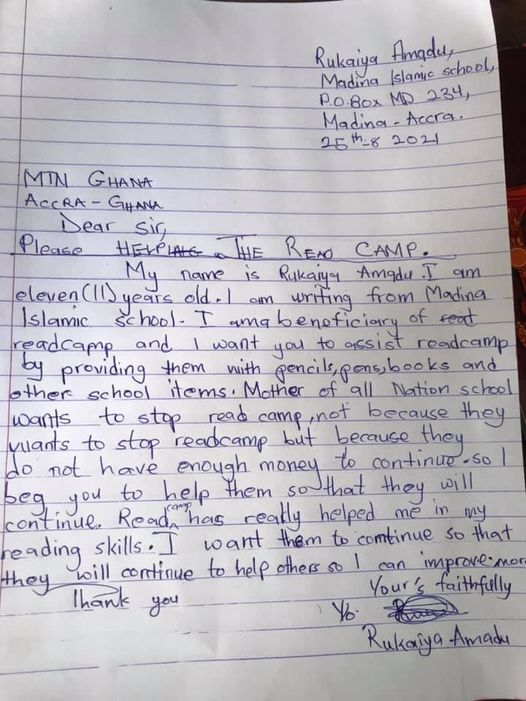 Rukaiya Amadu,
Madina Islamic school,
P.O.Box MD 234,
Madina - Accra.
25th-8 2021
MTN GHANA
ACCRA - GHANA
Dear Sir,
Please THE READ CAMP.
My name is Rukaiya Amadu. I am
eleven (11) years old. I am writing from Madina
Islamic school. I am a beneficiary of
readcamp and I want you to assist readcamp
by providing them with pencils, pens, books and
other school items. Mother of all Nation school
wants to stop read camp, not because they
wants to stop readcamp but because they
do not have enough money to continue. so I
beg you to help them so that they will
continue. Read camp has really helped me in my
reading skills. I want them to continue so that
they will continue to help others so I can improve more
Your's faithfully
Thank you
Rukaiya Amadu